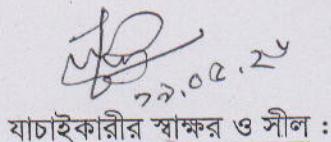 ১১.০৫.২৫
যাচাইকারীর স্বাক্ষর ও সীল :